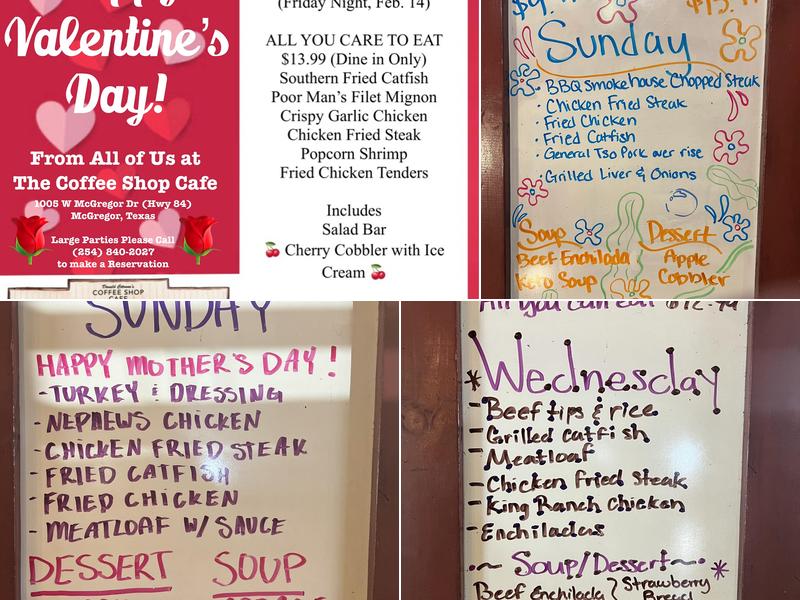 Valentine's
Day!
From All of Us at
The Coffee Shop Cafe
1005 W McGregor Dr (Hwy 84)
McGregor, Texas
Large Parties Please Call
(254) 840-2027
to make a Reservation
COFFEE SHOP
CAFE
(Friday Night, Feb. 14)
ALL YOU CARE TO EAT
$13.99 (Dine in Only)
Southern Fried Catfish
Poor Man's Filet Mignon
Crispy Garlic Chicken
Chicken Fried Steak
Popcorn Shrimp
Fried Chicken Tenders
Includes
Salad Bar
🍒 Cherry Cobbler with Ice
Cream 🍒
Sunday
· BBQ Smokehouse Chopped Steak
· Chicken Fried Steak
· Fried Chicken
· Fried Catfish
· General Tso Pork over rise
· Grilled Liver & Onions
Soup
Beef Enchilada
Keto Soup
Dessert
Apple
Cobbler
SUNDAY
HAPPY MOTHER'S DAY!
- TURKEY & DRESSING
- NEPHEWS CHICKEN
- CHICKEN FRIED STEAK
- FRIED CATFISH
- FRIED CHICKEN
- MEATLOAF W/ SAUCE
DESSERT SOUP
All you can eat
* Wednesday
- Beef tips & rice
- Grilled catfish
- Meatloaf
- Chicken fried steak
- King Ranch Chicken
- Enchiladas
~ Soup/Dessert ~ *
Beef Enchilada
Strawberry
Bread